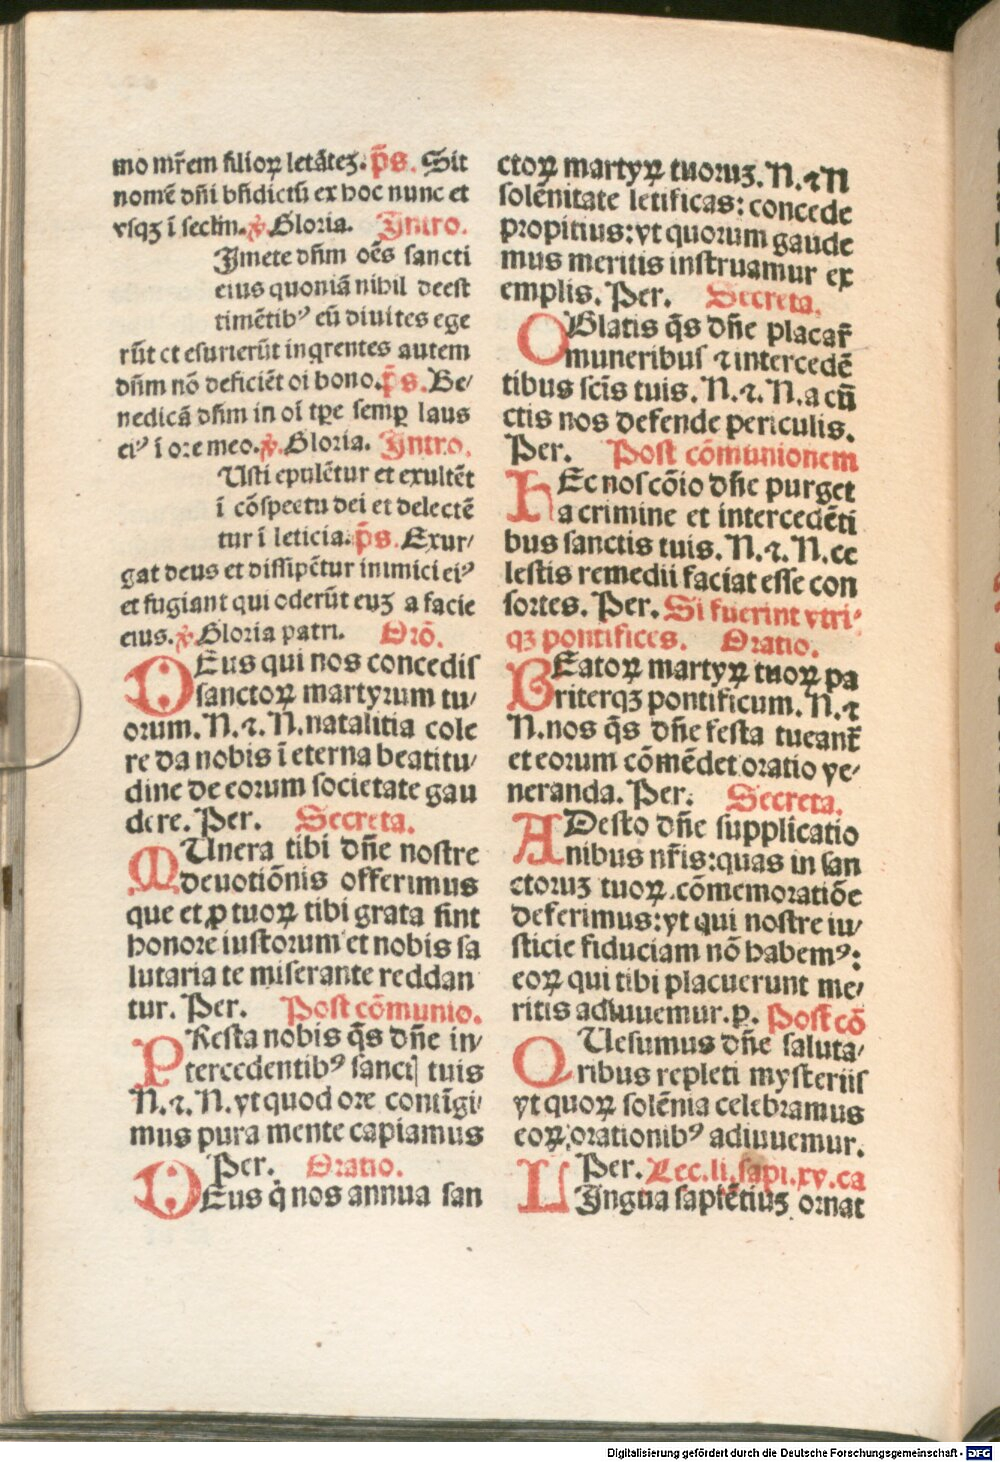 mo mr̄em filioꝝ letāteꝫ. p̄s. Sit
nomē dn̄i bn̄dictū ex hoc nunc et
vsqꝫ ī seclm̄. ꝟ. Gloria. Intro.
Imete dn̄m oēs sancti
eius quoniā nihil deest
timētibꝰ eū diuites ege
rūt et esurierūt inqrentes autem
dn̄m nō deficiēt oi bono. p̄s. Be⸗
nedicā dn̄m in oī tp̄e semꝑ laus
eiꝰ ī ore meo. ꝟ. Gloria. Intro.
Usti epulētur et exultēt
ī cōspectu dei et delectē
tur ī leticia. p̄s. Exur⸗
gat deus et dissipētur inimici eiꝰ
et fugiant qui oderūt euꝫ a facie
eius. ꝟ. Gloria patri. Orō.
DEus qui nos concedis
sanctoꝝ martyrum tu⸗
orum. N. ⁊. N. natalitia cole
re da nobis ī eterna beatitu⸗
dine de eorum societate gau
dere. Per. Secreta.
MUnera tibi dn̄e nostre
deuotiōnis offerimus
que et ꝓ tuoꝝ tibi grata sint
honore iustorum et nobis sa
lutaria te miserante reddan
tur. Per. Post cōmunio.
PResta nobis q̄s dn̄e in⸗
tercedentibꝰ sanctis tuis
N. ⁊. N. vt quod ore contīgi⸗
mus pura mente capiamus
Per. Oratio.
DEus q̄ nos annua san
ctoꝝ martyꝝ tuoruꝫ. N. ⁊ N
solēnitate letificas: concede
propitius: vt quorum gaude
mus meritis instruamur ex
emplis. Per. Secreta.
OBlatis q̄s dn̄e placar̄
muneribus ⁊ intercedē
tibus scīs tuis. N. ⁊. N. a cū
ctis nos defende periculis.
Per. Post cōmunionem
HEc nos cōio dn̄e purget
a crimine et intercedēti
bus sanctis tuis. N. ⁊. N. ce
lestis remedii faciat esse con
sortes. Per. Si fuerint vtri⸗
qꝫ pontifices. Oratio.
BEatoꝝ martyꝝ tuoꝝ pa
riterqꝫ pontificum. N. ⁊
N. nos q̄s dn̄e festa tueant̄
et eorum cōmēdet oratio ve⸗
neranda. Per. Secreta.
ADesto dn̄e supplicatio
nibus nr̄is: quas in san
ctoruꝫ tuoꝝ .cōmemoratiōe
deferimus: vt qui nostre iu⸗
sticie fiduciam nō habemꝰ:
eoꝝ qui tibi placuerunt me⸗
ritis adiuuemur. p. Post cō
QUesumus dn̄e saluta⸗
ribus repleti mysteriis
vt quoꝝ solēnia celebramus
eoꝝ orationibꝰ adiuuemur.
Per. Lec. li. sapi. xv. ca
LIngua sapiētiuꝫ ornat
Digitalisierung gefördert durch die Deutsche Forschungsgemeinschaft - DFG